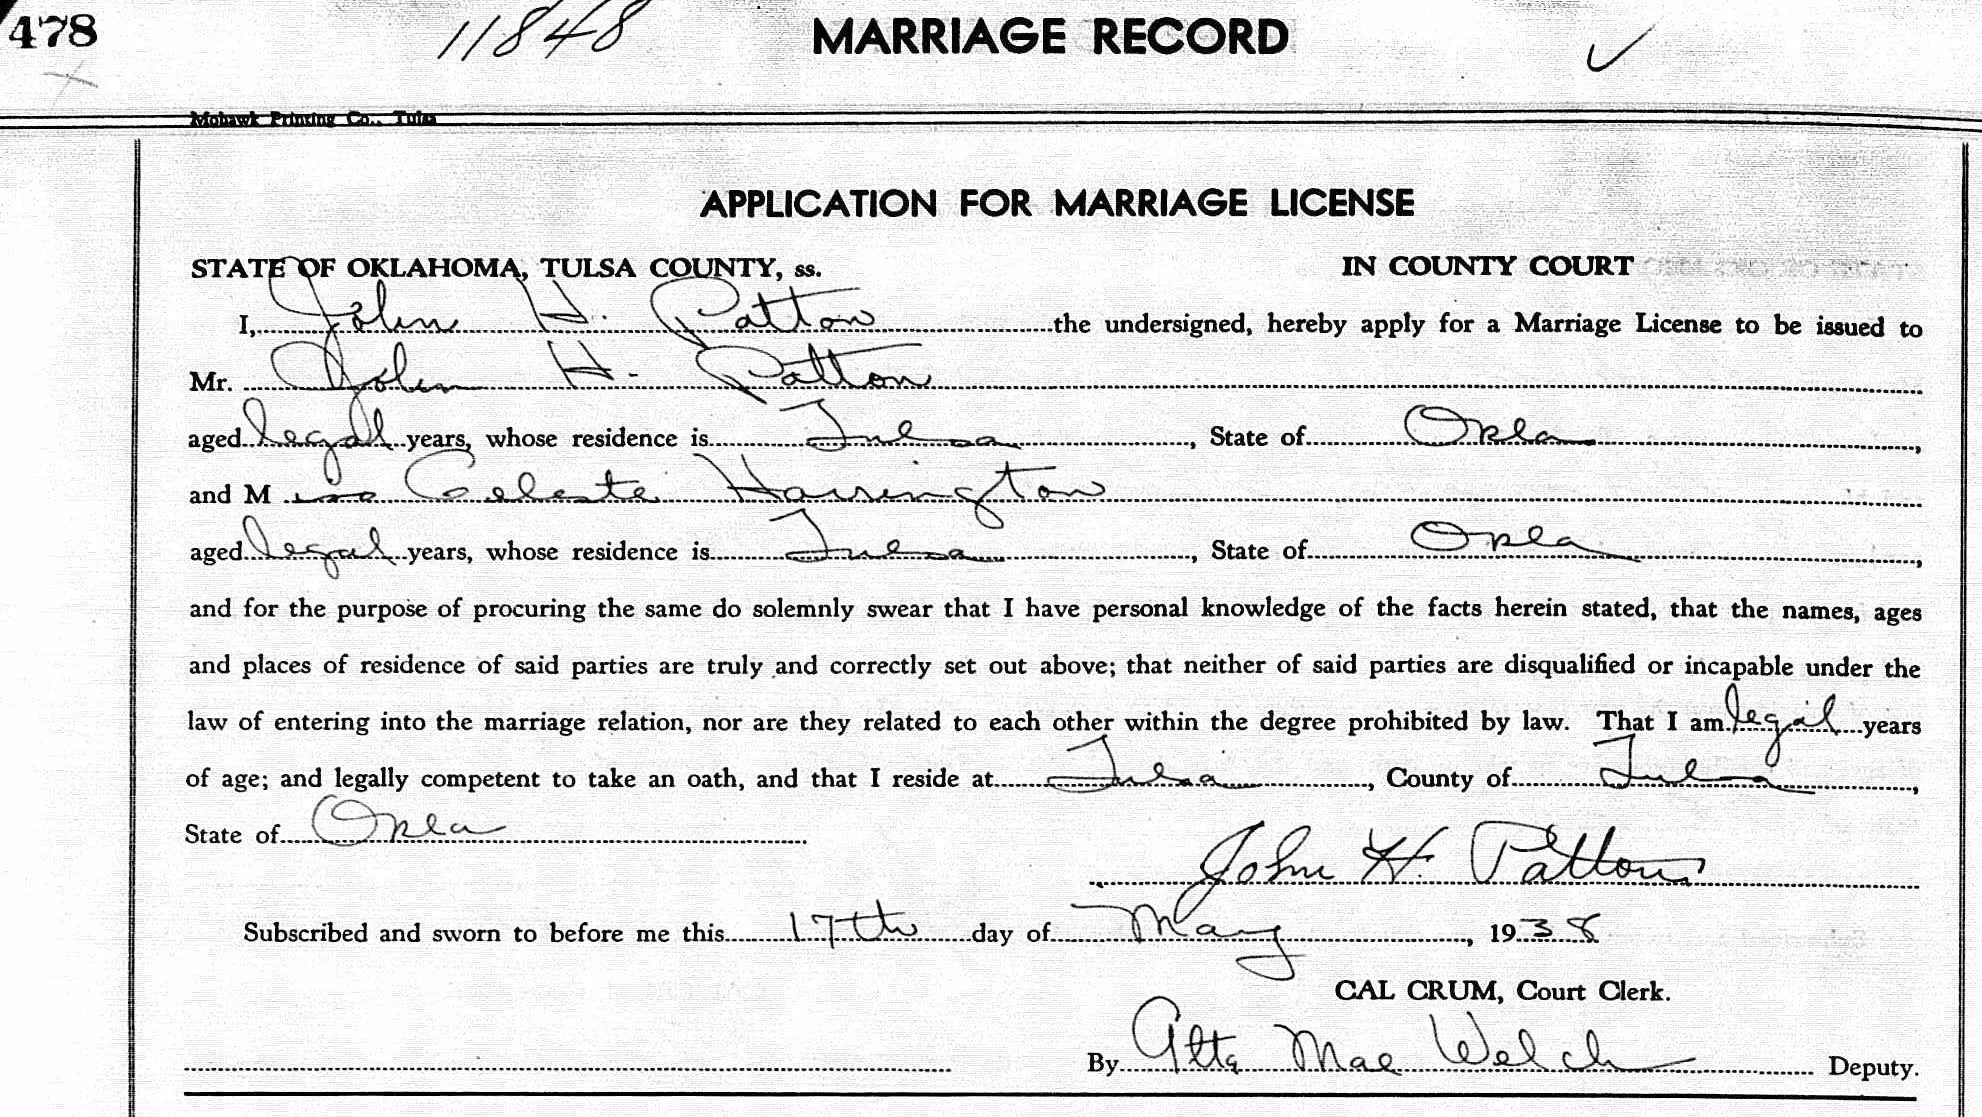 478 11848 MARRIAGE RECORD ✓
Mohawk Printing Co., Tulsa
APPLICATION FOR MARRIAGE LICENSE
STATE OF OKLAHOMA, TULSA COUNTY, ss. IN COUNTY COURT
I, John H. Patton the undersigned, hereby apply for a Marriage License to be issued to
Mr. John H. Patton
aged legal years, whose residence is Tulsa, State of Okla,
and Miss Celeste Harrington
aged legal years, whose residence is Tulsa, State of Okla,
and for the purpose of procuring the same do solemnly swear that I have personal knowledge of the facts herein stated, that the names, ages
and places of residence of said parties are truly and correctly set out above; that neither of said parties are disqualified or incapable under the
law of entering into the marriage relation, nor are they related to each other within the degree prohibited by law. That I am legal years
of age; and legally competent to take an oath, and that I reside at Tulsa, County of Tulsa,
State of Okla.
John H. Patton
Subscribed and sworn to before me this 17th day of May, 1938
CAL CRUM, Court Clerk.
By Alta Mae Welch Deputy.